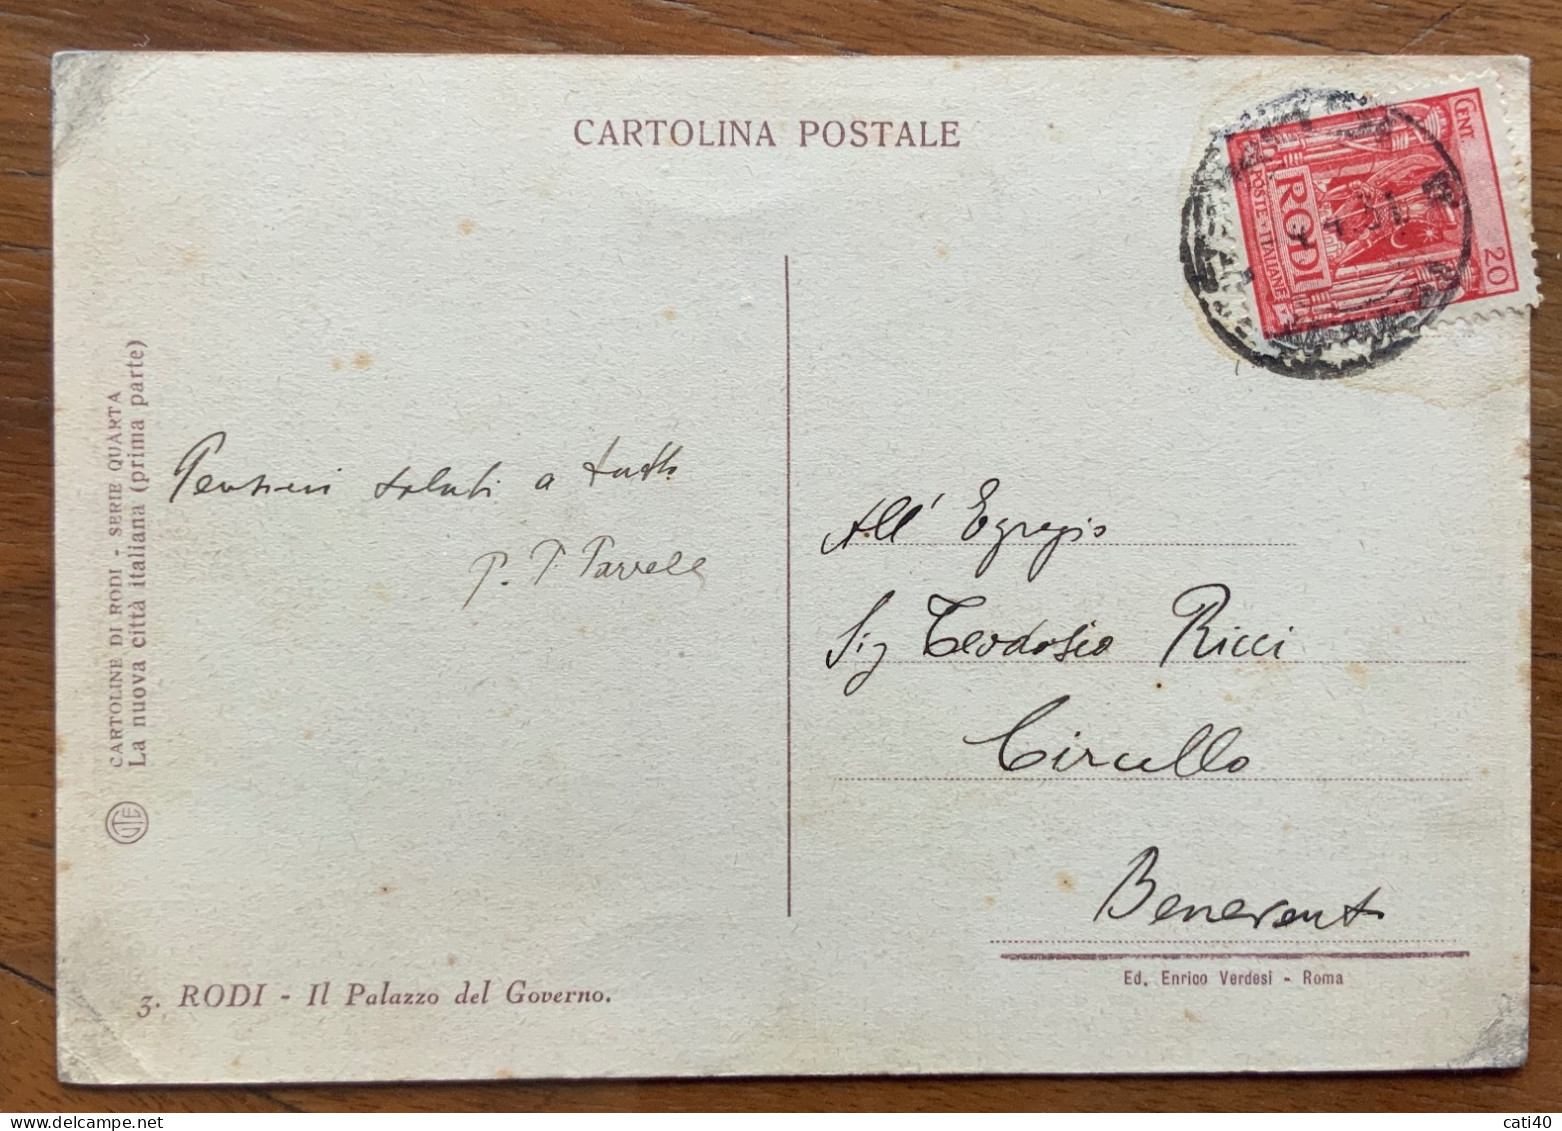 CARTOLINA POSTALE
CENT
20
RODI
POSTE ITALIANE
4.31
CARTOLINE DI RODI - SERIE QUARTA
La nuova città italiana (prima parte)
UTE
Pensieri saluti a tutti
P. T. Parrella
All' Egregio
Sig Teodosio Ricci
Circello
Benevento
Ed. Enrico Verdesi - Roma
3. RODI - Il Palazzo del Governo.
cati40